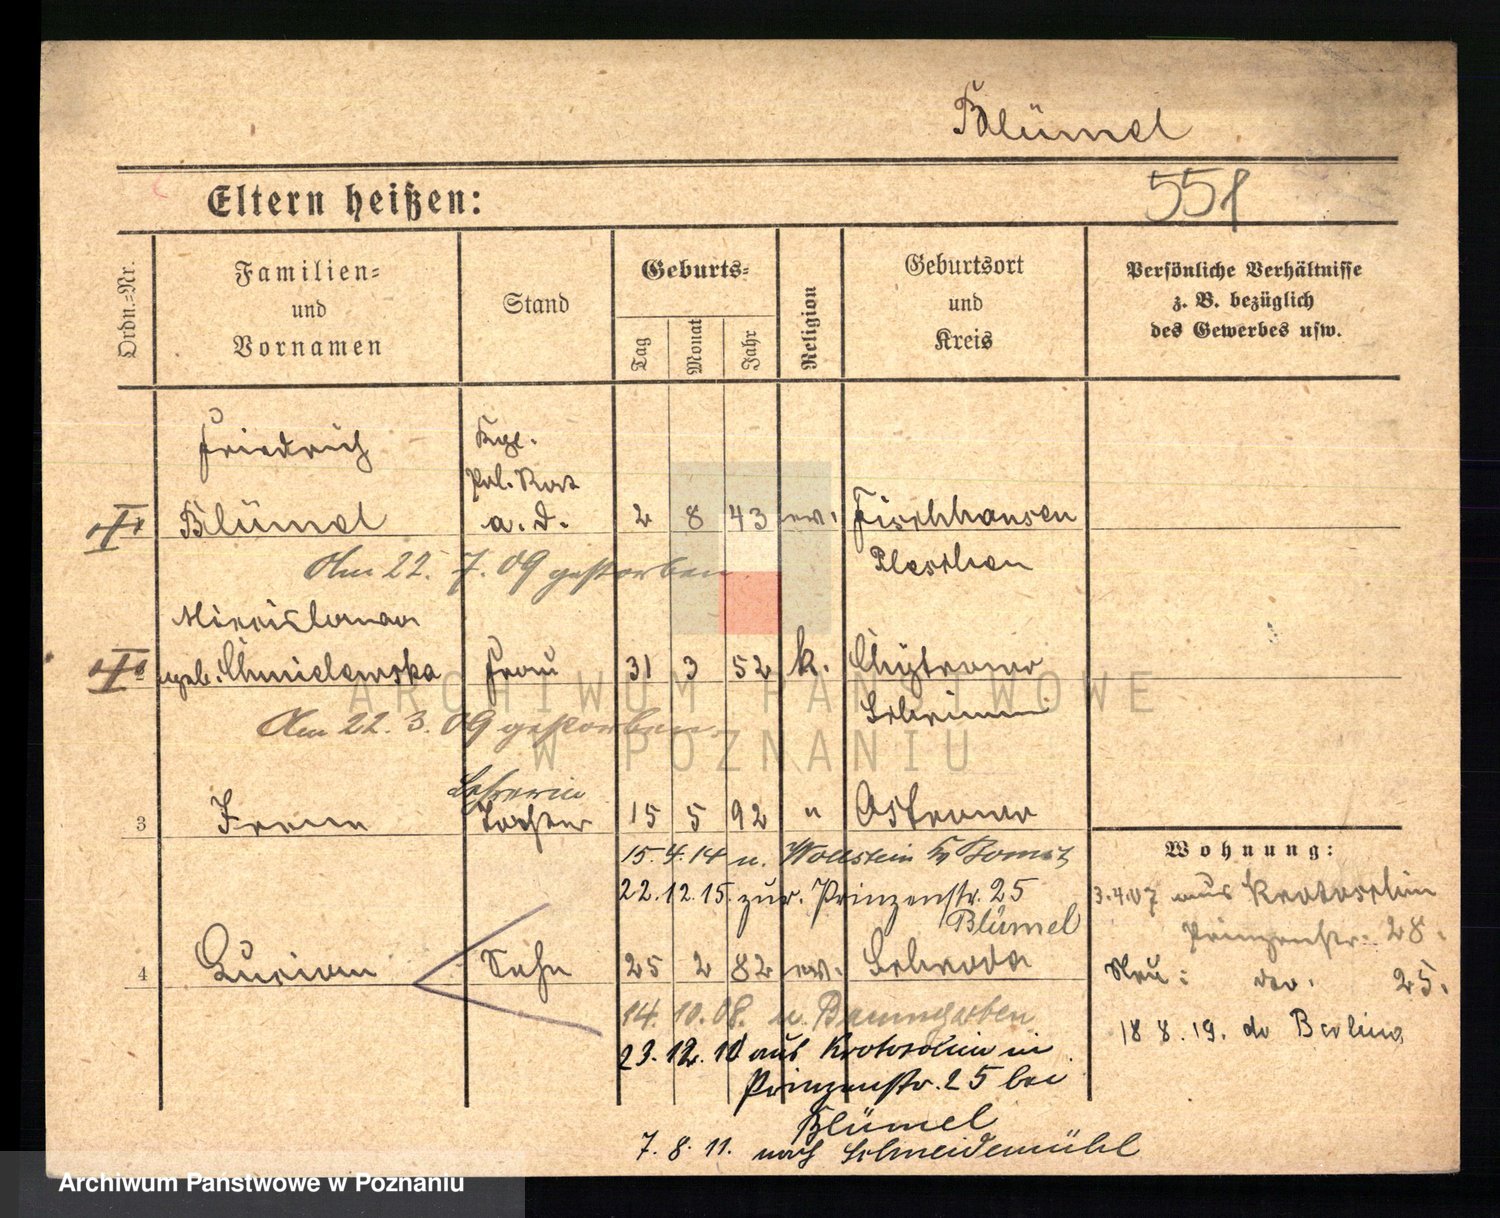 Blümel
Eltern heißen:
551
Ordn.-Nr.
Familien-
und
Vornamen
Stand
Geburts-
Tag
Monat
Jahr
Religion
Geburtsort
und
Kreis
Persönliche Verhältnisse
z. B. bezüglich
des Gewerbes usw.
Friedrich
Kgl.
Pol. Rat
Blümel a. D. 2 8 43 ev. Fischhausen
Pleschen
Am 22. 7. 09 gestorben
geb. Chmielewska Frau 31 3 52 k.
Schrimm
Am 22. 3. 09 gestorben.
Lehrerin
3 Irene Tochter 15 5 92 " Ostrowo
15. 4. 14 n. Wollstein Kr Bomst
22. 12. 15. zur. Prinzenstr. 25
Blümel
Wohnung:
3.4.07 aus Krotoschin
Prinzenstr. 28.
Neu: 25.
18 8. 19. Berlin
4 Lucian Sohn 25 2 82 ev. Schroda
14. 10. 08. n. Baumgarten
23. 12. 10 aus Krotoschin in
Prinzenstr. 25 bei
Blümel
7. 8. 11. nach Schneidemühl
ARCHIWUM PAŃSTWOWE
W POZNANIU
Archiwum Państwowe w Poznaniu